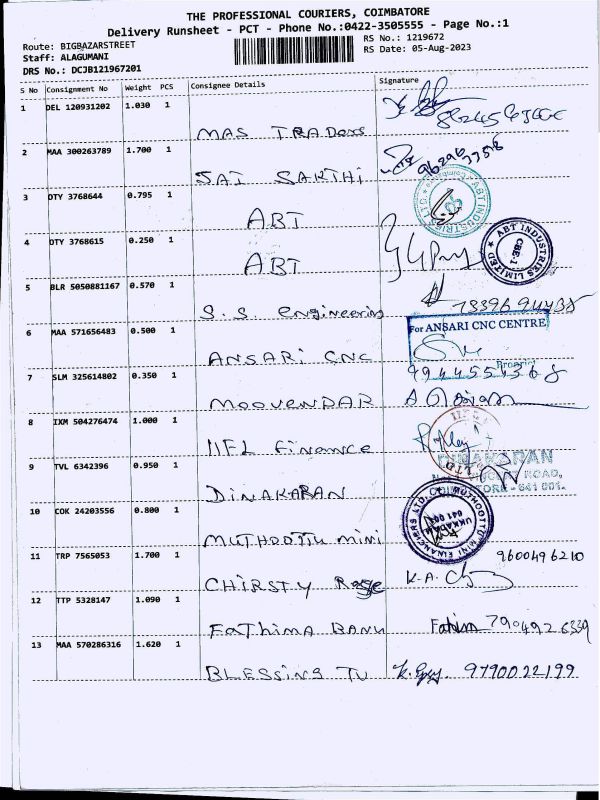 THE PROFESSIONAL COURIERS, COIMBATORE
Delivery Runsheet - PCT - Phone No.:0422-3505555 - Page No.:1
Route: BIGBAZARSTREET
RS No.: 1219672
Staff: ALAGUMANI
RS Date: 05-Aug-2023
DRS No.: DCJB121967201
S No Consignment No Weight PCS Consignee Details Signature
1 DEL 120931202 1.030 1
MAS TRADors
2 MAA 300263789 1.700 1
SAI SAKTHI
3 DTY 3768644 0.795 1
ABT
ABT INDUSTRIES LTD
4 DTY 3768615 0.250 1
ABT
ABT INDUSTRIES LIMITED
CBE-1
5 BLR 5050881167 0.570 1
S.S. engineering
6 MAA 571656483 0.500 1
For ANSARI CNC CENTRE
ANSARI CNC
7 SLM 325614802 0.350 1
MOOVENDAR
8 IXM 504276474 1.000 1
IIFL Finance
9 TVL 6342396 0.950 1
DINAKARAN
DINAKARAN
ROAD,
641 001.
10 COK 24203556 0.800 1
MUTHOOTTU mini
MUTHOOTTU MINI FINANCIERS LTD.
UKKADAM
641 001
11 TRP 7565053 1.700 1
CHIRSTY
K.A.
9600496210
12 TTP 5328147 1.090 1
FaThima BANU
Fathima 7904926339
13 MAA 570286316 1.620 1
BLESSING TV
9790022199